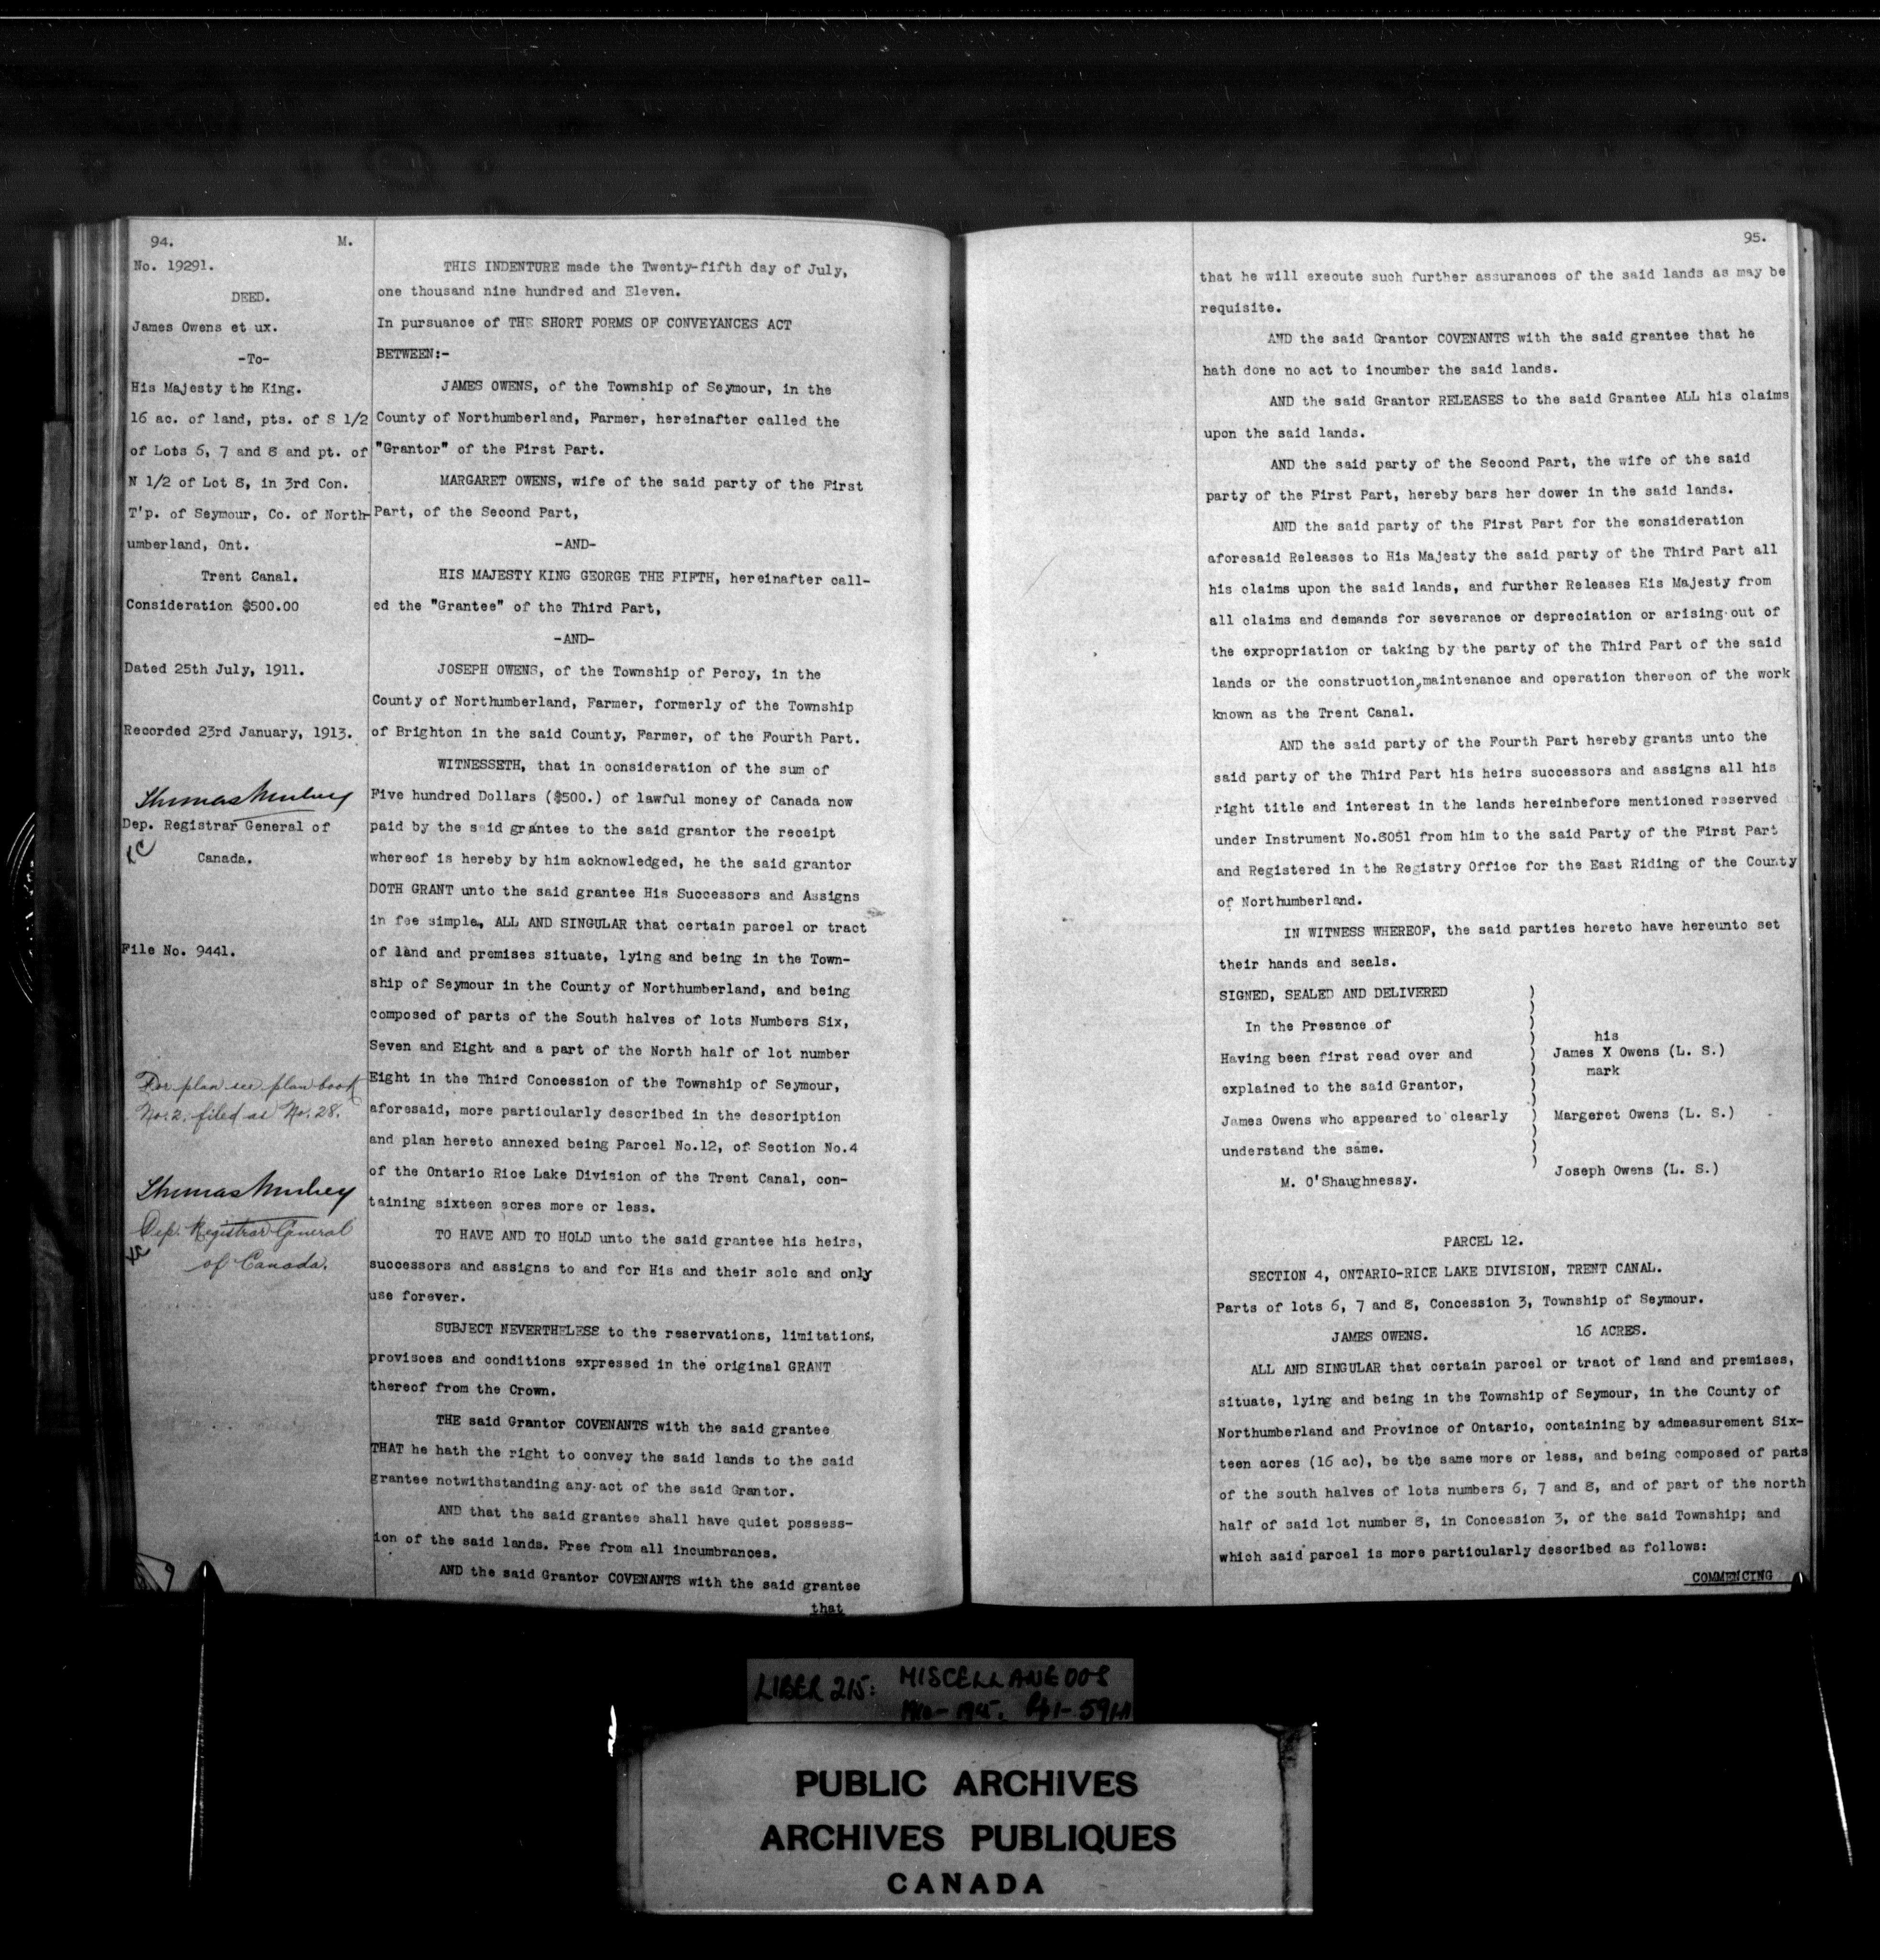 94. M.
No. 19291.
DEED.
James Owens et ux.
-To-
His Majesty the King.
16 ac. of land, pts. of S 1/2
of Lots 6, 7 and 8 and pt. of
N 1/2 of Lot 8, in 3rd Con.
T'p. of Seymour, Co. of North-
umberland, Ont.
Trent Canal.
Consideration $500.00
Dated 25th July, 1911.
Recorded 23rd January, 1913.
Thomas Mulvey
Dep. Registrar General of
Canada.
File No. 9441.
For plan see plan book
No. 2. filed as No. 28.
Thomas Mulvey
Dep. Registrar General
of Canada.
THIS INDENTURE made the Twenty-fifth day of July,
one thousand nine hundred and Eleven.
In pursuance of THE SHORT FORMS OF CONVEYANCES ACT
BETWEEN:-
JAMES OWENS, of the Township of Seymour, in the
County of Northumberland, Farmer, hereinafter called the
"Grantor" of the First Part.
MARGARET OWENS, wife of the said party of the First
Part, of the Second Part,
-AND-
HIS MAJESTY KING GEORGE THE FIFTH, hereinafter call-
ed the "Grantee" of the Third Part,
-AND-
JOSEPH OWENS, of the Township of Percy, in the
County of Northumberland, Farmer, formerly of the Township
of Brighton in the said County, Farmer, of the Fourth Part.
WITNESSETH, that in consideration of the sum of
Five hundred Dollars ($500.) of lawful money of Canada now
paid by the said grantee to the said grantor the receipt
whereof is hereby by him acknowledged, he the said grantor
DOTH GRANT unto the said grantee His Successors and Assigns
in fee simple, ALL AND SINGULAR that certain parcel or tract
of land and premises situate, lying and being in the Town-
ship of Seymour in the County of Northumberland, and being
composed of parts of the South halves of lots Numbers Six,
Seven and Eight and a part of the North half of lot number
Eight in the Third Concession of the Township of Seymour,
aforesaid, more particularly described in the description
and plan hereto annexed being Parcel No.12, of Section No.4
of the Ontario Rice Lake Division of the Trent Canal, con-
taining sixteen acres more or less.
TO HAVE AND TO HOLD unto the said grantee his heirs,
successors and assigns to and for His and their sole and only
use forever.
SUBJECT NEVERTHELESS to the reservations, limitations,
provisoes and conditions expressed in the original GRANT
thereof from the Crown.
THE said Grantor COVENANTS with the said grantee
THAT he hath the right to convey the said lands to the said
grantee notwithstanding any act of the said Grantor.
AND that the said grantee shall have quiet possess-
ion of the said lands. Free from all incumbrances.
AND the said Grantor COVENANTS with the said grantee
that
95.
that he will execute such further assurances of the said lands as may be
requisite.
AND the said Grantor COVENANTS with the said grantee that he
hath done no act to incumber the said lands.
AND the said Grantor RELEASES to the said Grantee ALL his claims
upon the said lands.
AND the said party of the Second Part, the wife of the said
party of the First Part, hereby bars her dower in the said lands.
AND the said party of the First Part for the consideration
aforesaid Releases to His Majesty the said party of the Third Part all
his claims upon the said lands, and further Releases His Majesty from
all claims and demands for severance or depreciation or arising out of
the expropriation or taking by the party of the Third Part of the said
lands or the construction, maintenance and operation thereon of the work
known as the Trent Canal.
AND the said party of the Fourth Part hereby grants unto the
said party of the Third Part his heirs successors and assigns all his
right title and interest in the lands hereinbefore mentioned reserved
under Instrument No.8051 from him to the said Party of the First Part
and Registered in the Registry Office for the East Riding of the County
of Northumberland.
IN WITNESS WHEREOF, the said parties hereto have hereunto set
their hands and seals.
SIGNED, SEALED AND DELIVERED
In the Presence of
Having been first read over and
explained to the said Grantor,
James Owens who appeared to clearly
understand the same.
M. O'Shaughnessy.
his
James X Owens (L. S.)
mark
Margeret Owens (L. S.)
Joseph Owens (L. S.)
PARCEL 12.
SECTION 4, ONTARIO-RICE LAKE DIVISION, TRENT CANAL.
Parts of lots 6, 7 and 8, Concession 3, Township of Seymour.
JAMES OWENS. 16 ACRES.
ALL AND SINGULAR that certain parcel or tract of land and premises,
situate, lying and being in the Township of Seymour, in the County of
Northumberland and Province of Ontario, containing by admeasurement Six-
teen acres (16 ac), be the same more or less, and being composed of parts
of the south halves of lots numbers 6, 7 and 8, and of part of the north
half of said lot number 8, in Concession 3, of the said Township; and
which said parcel is more particularly described as follows:
COMMENCING
LIBER 215: MISCELLANEOUS
PUBLIC ARCHIVES
ARCHIVES PUBLIQUES
CANADA